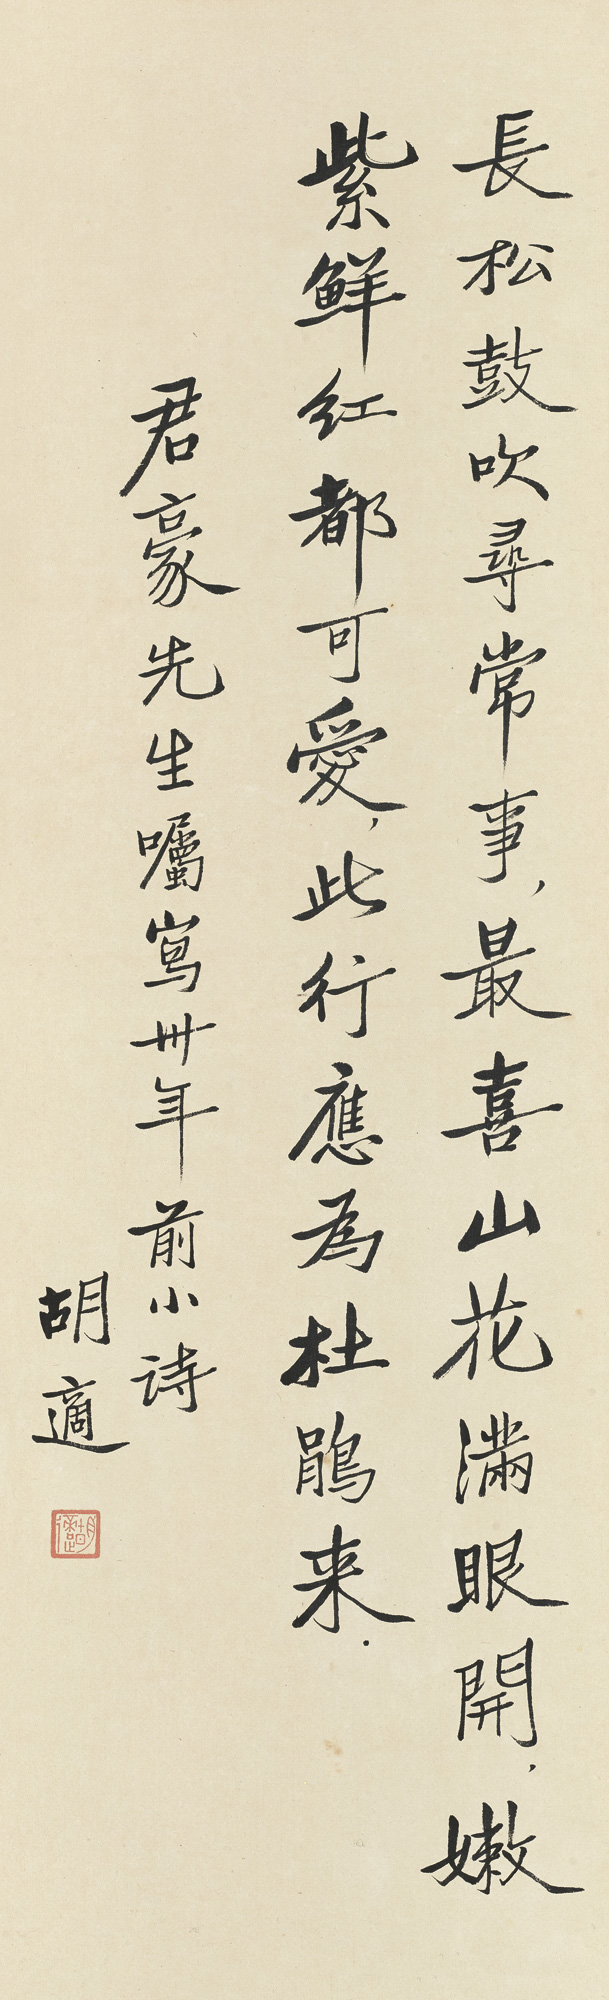 長松鼓吹尋常事，最喜山花滿眼開，嫩
紫鮮红都可愛，此行應為杜鵑来.
君豪先生囑寫卅年前小诗
胡適
胡適